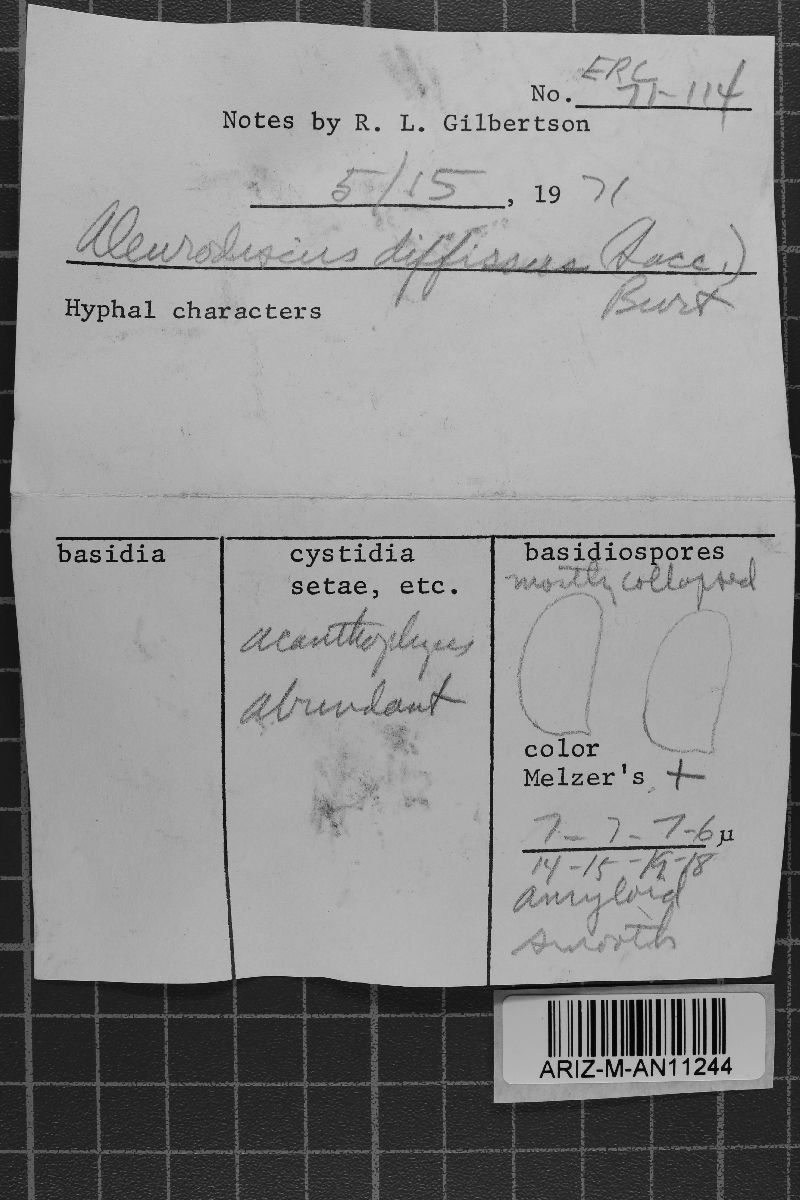 No. ERC 71-114
Notes by R. L. Gilbertson
5/15, 19 71
Aleurodiscus diffissus (Sacc.)
Burt
Hyphal characters
basidia
cystidia
setae, etc.
acanthophyses
abundant
basidiospores
mostly collapsed
color
Melzer's +
7 - 7 - 7-6 µ
14 - 15 - 19-18
amyloid
smooth
ARIZ-M-AN11244